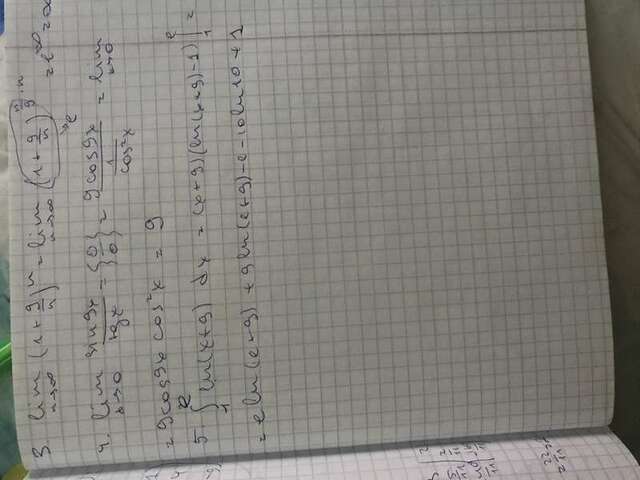 3. lim n→∞ (1 + 9/n)^n = lim n→∞ (1 + 9/n)^(n/9 · n) = e^∞ = ∞
→ e
4. lim x→0 sin 9x / tg x = {0/0} = 9 cos 9x / (1 / cos²x) = lim x→0
= 9 cos 9x cos²x = 9
5. ∫₁^e ln(x+9) dx = (x+9)(ln(x+9)-1) |₁^e =
= e ln(e+9) + 9 ln(e+9) - e - 10 ln 10 + 1